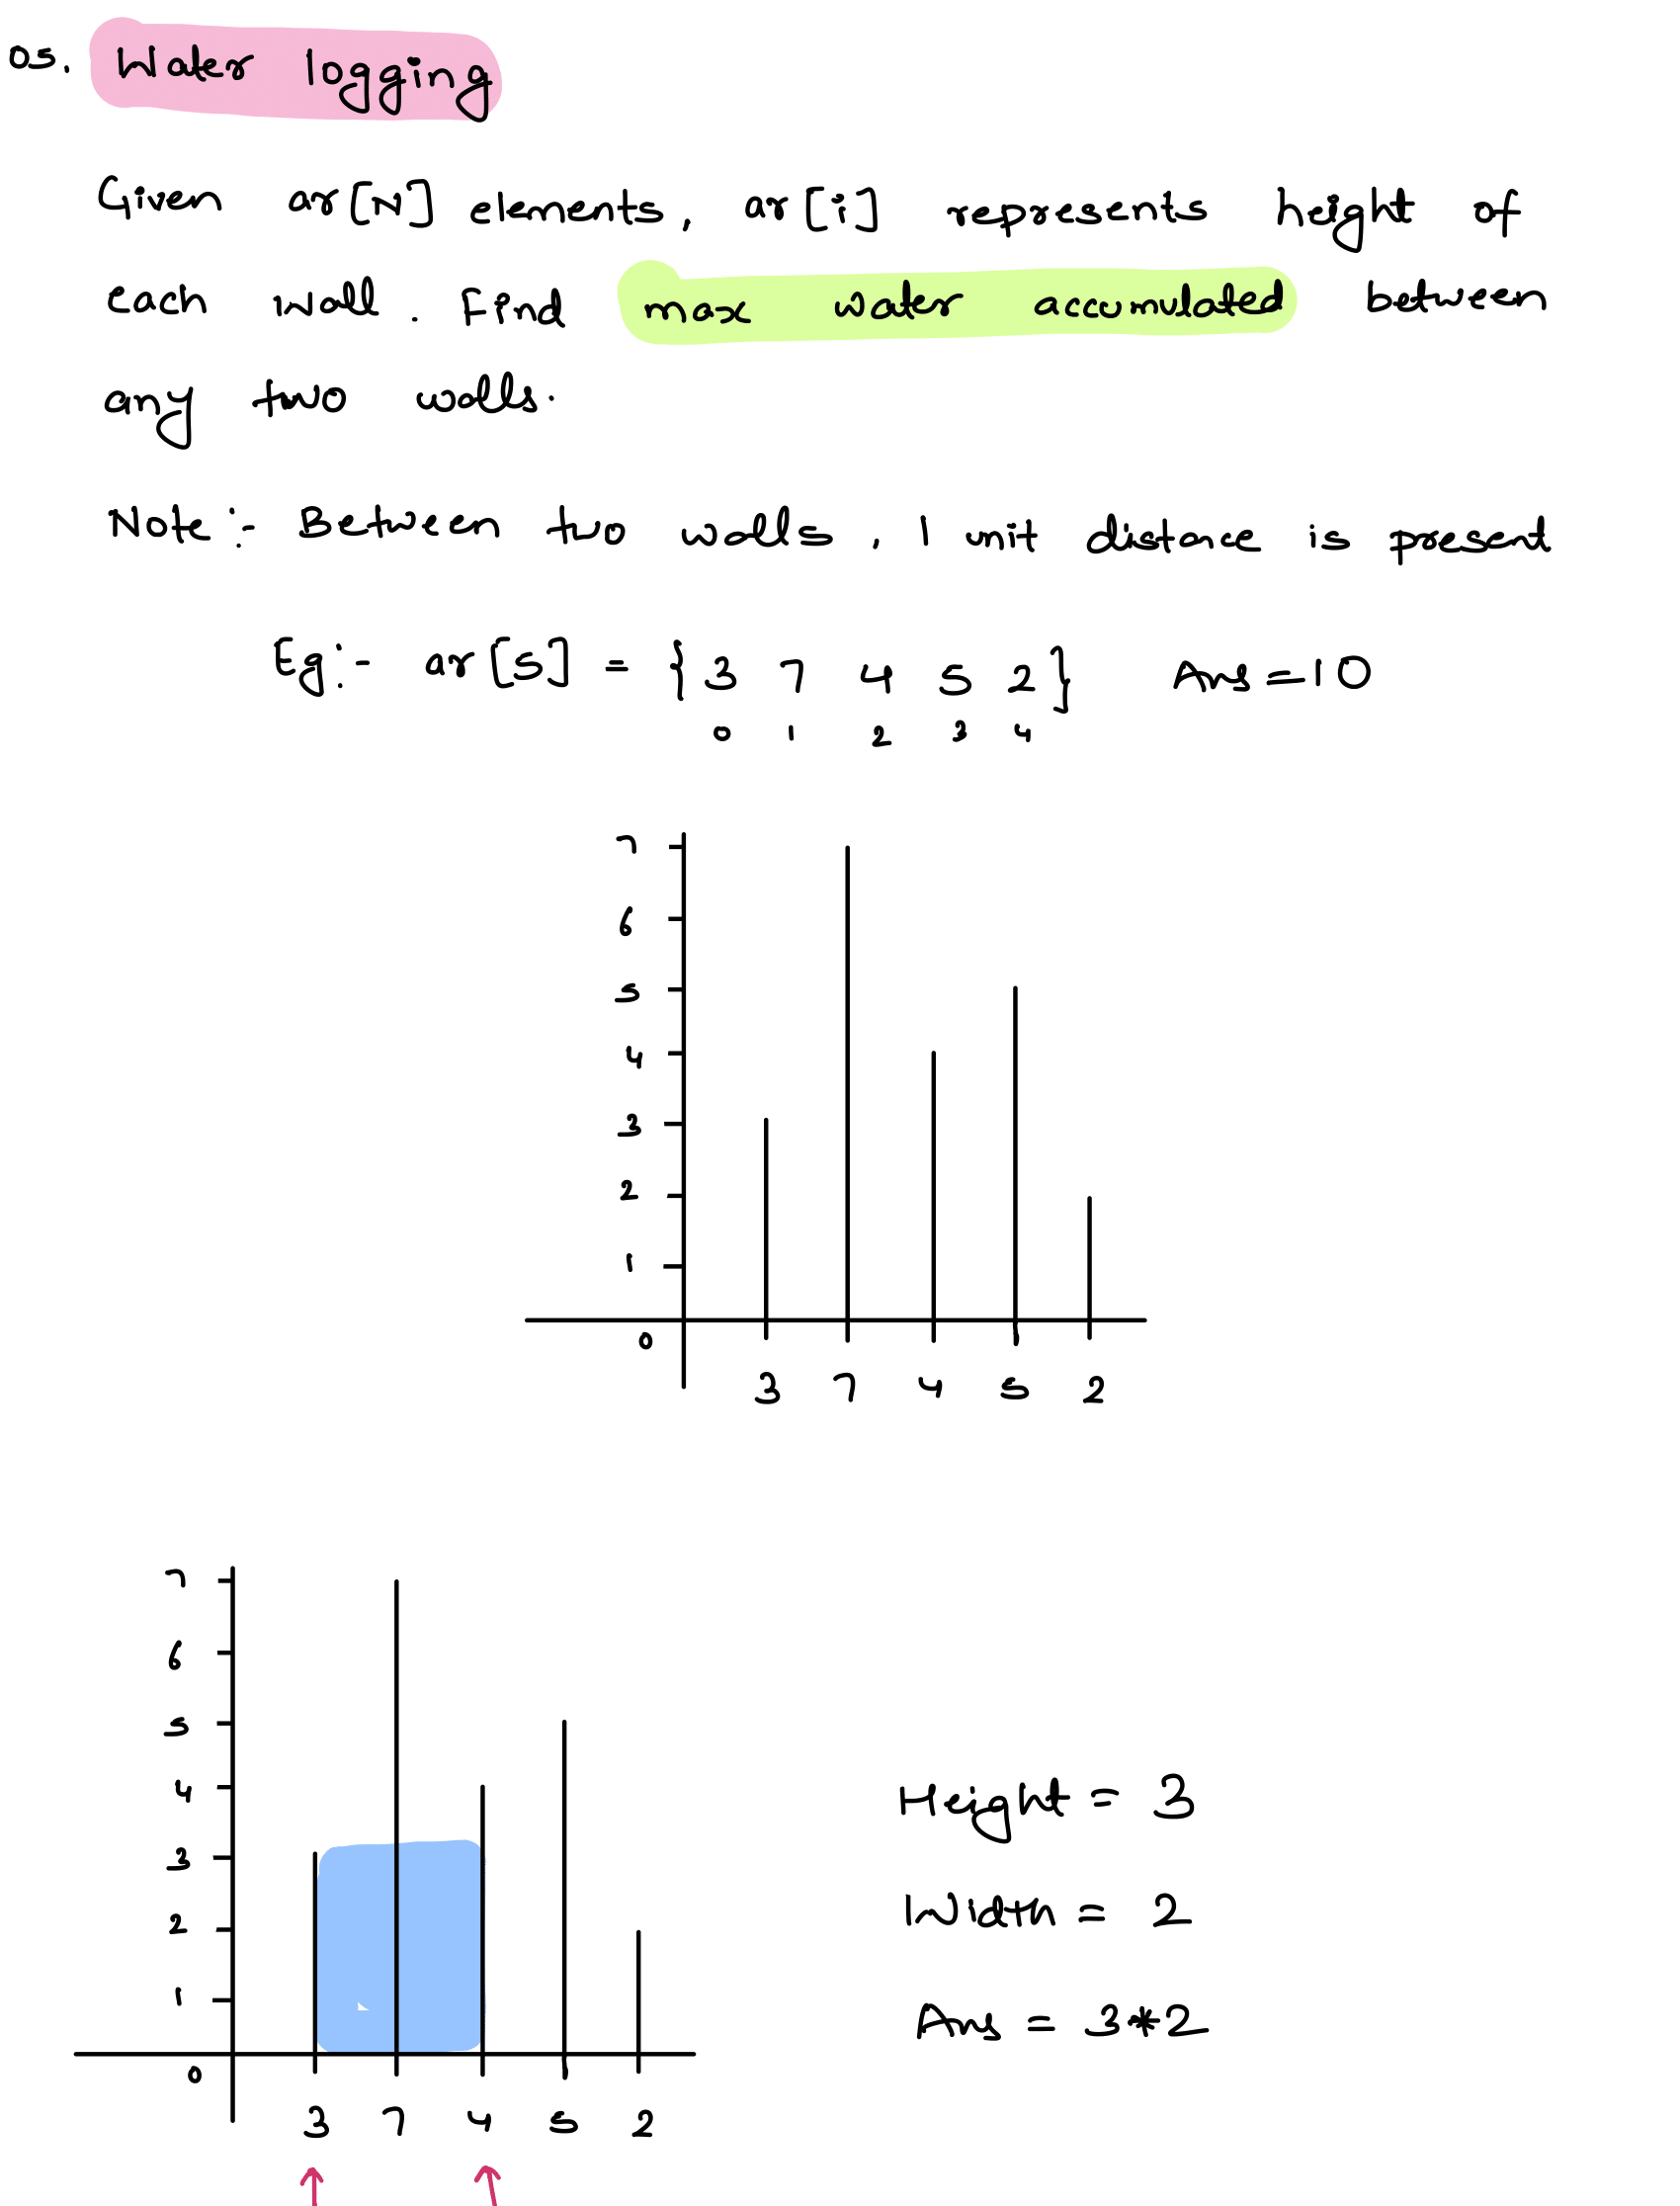 05. Water logging
Given ar[N] elements, ar[i] represents height of
each wall. Find max water accumulated between
any two walls.
Note :- Between two walls, 1 unit distance is present
Eg:- ar[5] = {3 7 4 5 2} Ans = 10
0 1 2 3 4
7
6
5
4
3
2
1
0
3 7 4 5 2
7
6
5
4
3
2
1
0
3 7 4 5 2
Height = 3
Width = 2
Ans = 3*2